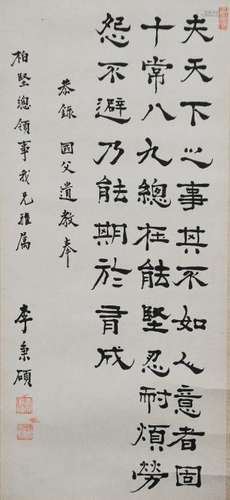 夫天下之事其不如人意者固
十常八九總在能堅忍耐煩勞
怨不避乃能期於有成
恭錄 國父遺教奉
柏堅總領事我兄雅屬
李秉碩